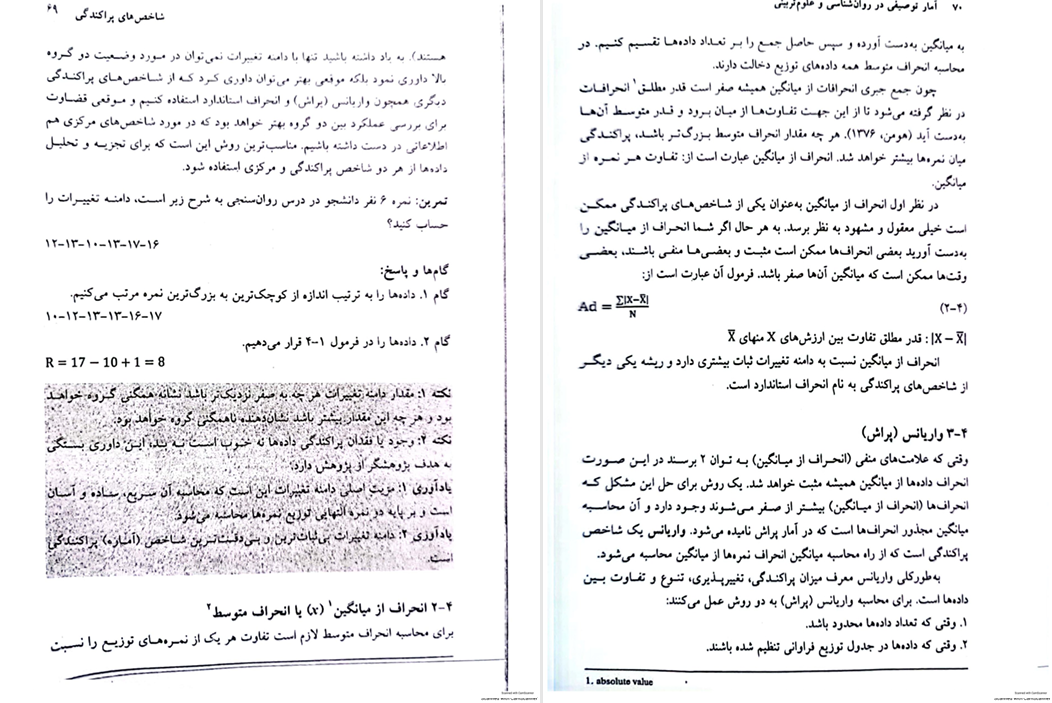 شاخص‌های پراکندگی ۶۹
هستند). به یاد داشته باشید تنها با دامنه تغییرات نمی‌توان در مورد وضعیت دو گروه
بالا داوری نمود بلکه موقعی بهتر می‌توان داوری کرد که از شاخص‌های پراکندگی
دیگری همچون واریانس (پراش) و انحراف استاندارد استفاده کنیم و موقعی قضاوت
برای بررسی عملکرد بین دو گروه بهتر خواهد بود که در مورد شاخص‌های مرکزی هم
اطلاعاتی در دست داشته باشیم. مناسب‌ترین روش این است که برای تجزیه و تحلیل
داده‌ها از هر دو شاخص پراکندگی و مرکزی استفاده شود.
تمرین: نمره ۶ نفر دانشجو در درس روان‌سنجی به شرح زیر است، دامنه تغییرات را
حساب کنید؟
۱۲-۱۳-۱۰-۱۳-۱۷-۱۶
گام‌ها و پاسخ:
گام ۱. داده‌ها را به ترتیب اندازه از کوچک‌ترین به بزرگ‌ترین نمره مرتب می‌کنیم.
۱۰-۱۲-۱۳-۱۳-۱۶-۱۷
گام ۲. داده‌ها را در فرمول ۱-۴ قرار می‌دهیم.
R = 17 − 10 + 1 = 8
نکته ۱: مقدار دامنه تغییرات هر چه به صفر نزدیک‌تر باشد نشانه همگنی گروه خواهد
بود و هر چه این مقدار بیشتر باشد نشان‌دهنده ناهمگنی گروه خواهد بود.
نکته ۲: وجود یا فقدان پراکندگی داده‌ها نه خوب است نه بد، این داوری بستگی
به هدف پژوهشگر از پژوهش دارد.
یادآوری ۱: مزیت اصلی دامنه تغییرات این است که محاسبه آن سریع، ساده و آسان
است و بر پایه دو نمره انتهایی توزیع نمره‌ها محاسبه می‌شود.
یادآوری ۲: دامنه تغییرات بی‌ثبات‌ترین و بی‌دقت‌ترین شاخص (آماره) پراکندگی
است.
۴-۲ انحراف از میانگین۱ (x) یا انحراف متوسط۲
برای محاسبه انحراف متوسط لازم است تفاوت هر یک از نمره‌های توزیع را نسبت
۷۰ آمار توصیفی در روان‌شناسی و علوم‌تربیتی
به میانگین به‌دست آورده و سپس حاصل جمع را بر تعداد داده‌ها تقسیم کنیم. در
محاسبه انحراف متوسط همه داده‌های توزیع دخالت دارند.
چون جمع جبری انحرافات از میانگین همیشه صفر است قدر مطلق۱ انحرافات
در نظر گرفته می‌شود تا از این جهت تفاوت‌ها از میان برود و قدر متوسط آن‌ها
به‌دست آید (هومن، ۱۳۷۶). هر چه مقدار انحراف متوسط بزرگ‌تر باشد، پراکندگی
میان نمره‌ها بیشتر خواهد شد. انحراف از میانگین عبارت است از: تفاوت هر نمره از
میانگین.
در نظر اول انحراف از میانگین به‌عنوان یکی از شاخص‌های پراکندگی ممکن
است خیلی معقول و مشهود به نظر برسد. به هر حال اگر شما انحراف از میانگین را
به‌دست آورید بعضی انحراف‌ها ممکن است مثبت و بعضی‌ها منفی باشند، بعضی
وقت‌ها ممکن است که میانگین آن‌ها صفر باشد. فرمول آن عبارت است از:
(۲-۴) Ad = ∑|X−X̄| / N
|X − X̄| : قدر مطلق تفاوت بین ارزش‌های X منهای X̄
انحراف از میانگین نسبت به دامنه تغییرات ثبات بیشتری دارد و ریشه یکی دیگر
از شاخص‌های پراکندگی به نام انحراف استاندارد است.
۴-۳ واریانس (پراش)
وقتی که علامت‌های منفی (انحراف از میانگین) به توان ۲ برسند در این صورت
انحراف داده‌ها از میانگین همیشه مثبت خواهد شد. یک روش برای حل این مشکل که
انحراف‌ها (انحراف از میانگین) بیشتر از صفر می‌شوند وجود دارد و آن محاسبه
میانگین مجذور انحراف‌ها است که در آمار پراش نامیده می‌شود. واریانس یک شاخص
پراکندگی است که از راه محاسبه میانگین انحراف نمره‌ها از میانگین محاسبه می‌شود.
به‌طورکلی واریانس معرف میزان پراکندگی، تغییرپذیری، تنوع و تفاوت بین
داده‌ها است. برای محاسبه واریانس (پراش) به دو روش عمل می‌کنند:
۱. وقتی که تعداد داده‌ها محدود باشد.
۲. وقتی که داده‌ها در جدول توزیع فراوانی تنظیم شده باشند.
1. absolute value